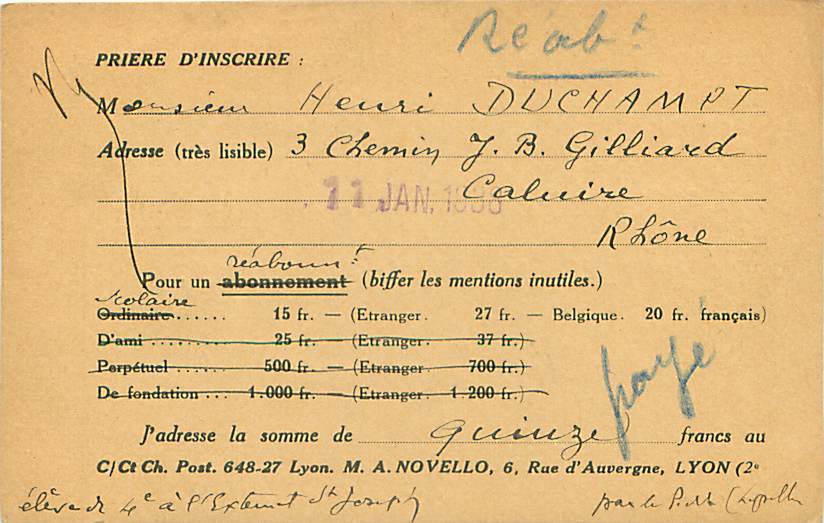 Réab^t
PRIERE D'INSCRIRE :
Monsieur Henri DUCHAMPT
Adresse (très lisible) 3 Chemin J. B. Gilliard
11 JAN. Caluire
Rhône
réabonn^t
Pour un abonnement (biffer les mentions inutiles.)
scolaire
Ordinaire...... 15 fr. — (Etranger. 27 fr. — Belgique. 20 fr. français)
D'ami ......... 25 fr. — (Etranger. 37 fr.)
Perpétuel ...... 500 fr. — (Etranger. 700 fr.)
De fondation ... 1.000 fr. — (Etranger. 1.200 fr.)
payé
J'adresse la somme de quinze francs au
C/Ct Ch. Post. 648-27 Lyon. M. A. NOVELLO, 6, Rue d'Auvergne, LYON (2e
élève de 4e à l'Externat St Joseph par le